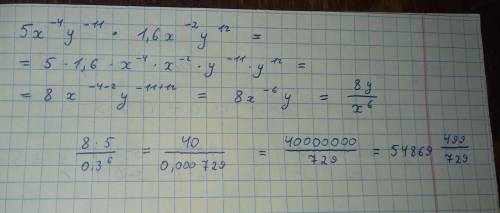 5x⁻⁴y⁻¹¹ · 1,6x⁻²y¹² =
= 5 · 1,6 · x⁻⁴ · x⁻² · y⁻¹¹ · y¹² =
= 8 x⁻⁴⁻²y⁻¹¹⁺¹² = 8x⁻⁶y = 8y/x⁶
8 · 5/0,3⁶ = 40/0,000729 = 40000000/729 = 54869 499/729